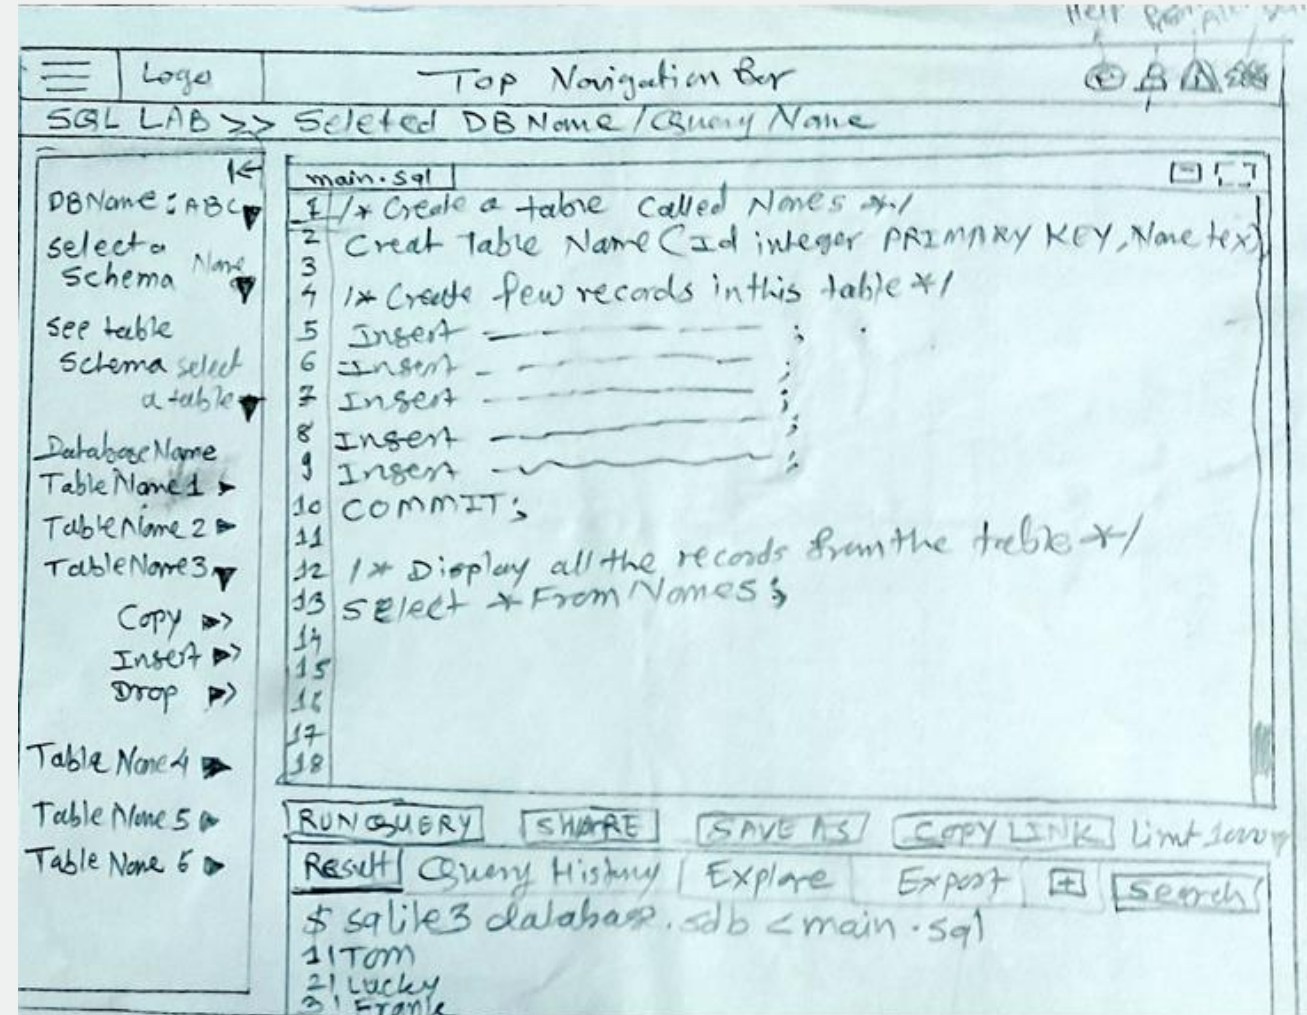 Help
Logo
Top Navigation Bar
SQL LAB >> Seleted DB Name / Query Name
DBName : ABC
select a
Schema None
see table
Schema select
a table
Database Name
Table Name 1
Table Name 2
Table Name 3
Copy >
Insert >
Drop >
Table Name 4
Table Name 5
Table Name 6
main.sql
1 /* Create a table called Names */
2 Creat Table Name (Id integer PRIMARY KEY, Name tex)
3
4 /* Create few records in this table */
5 Insert ;
6 Insert ;
7 Insert ;
8 Insert ;
9 Insert ;
10 COMMIT;
11
12 /* Display all the records from the table */
13 Select * From Names ;
14
15
16
17
18
RUN QUERY SHARE SAVE AS COPY LINK Limt
Result Query History Explore Export + Search
$ sqlite3 database.sdb < main.sql
1|Tom
2|Lucky
3|Frank